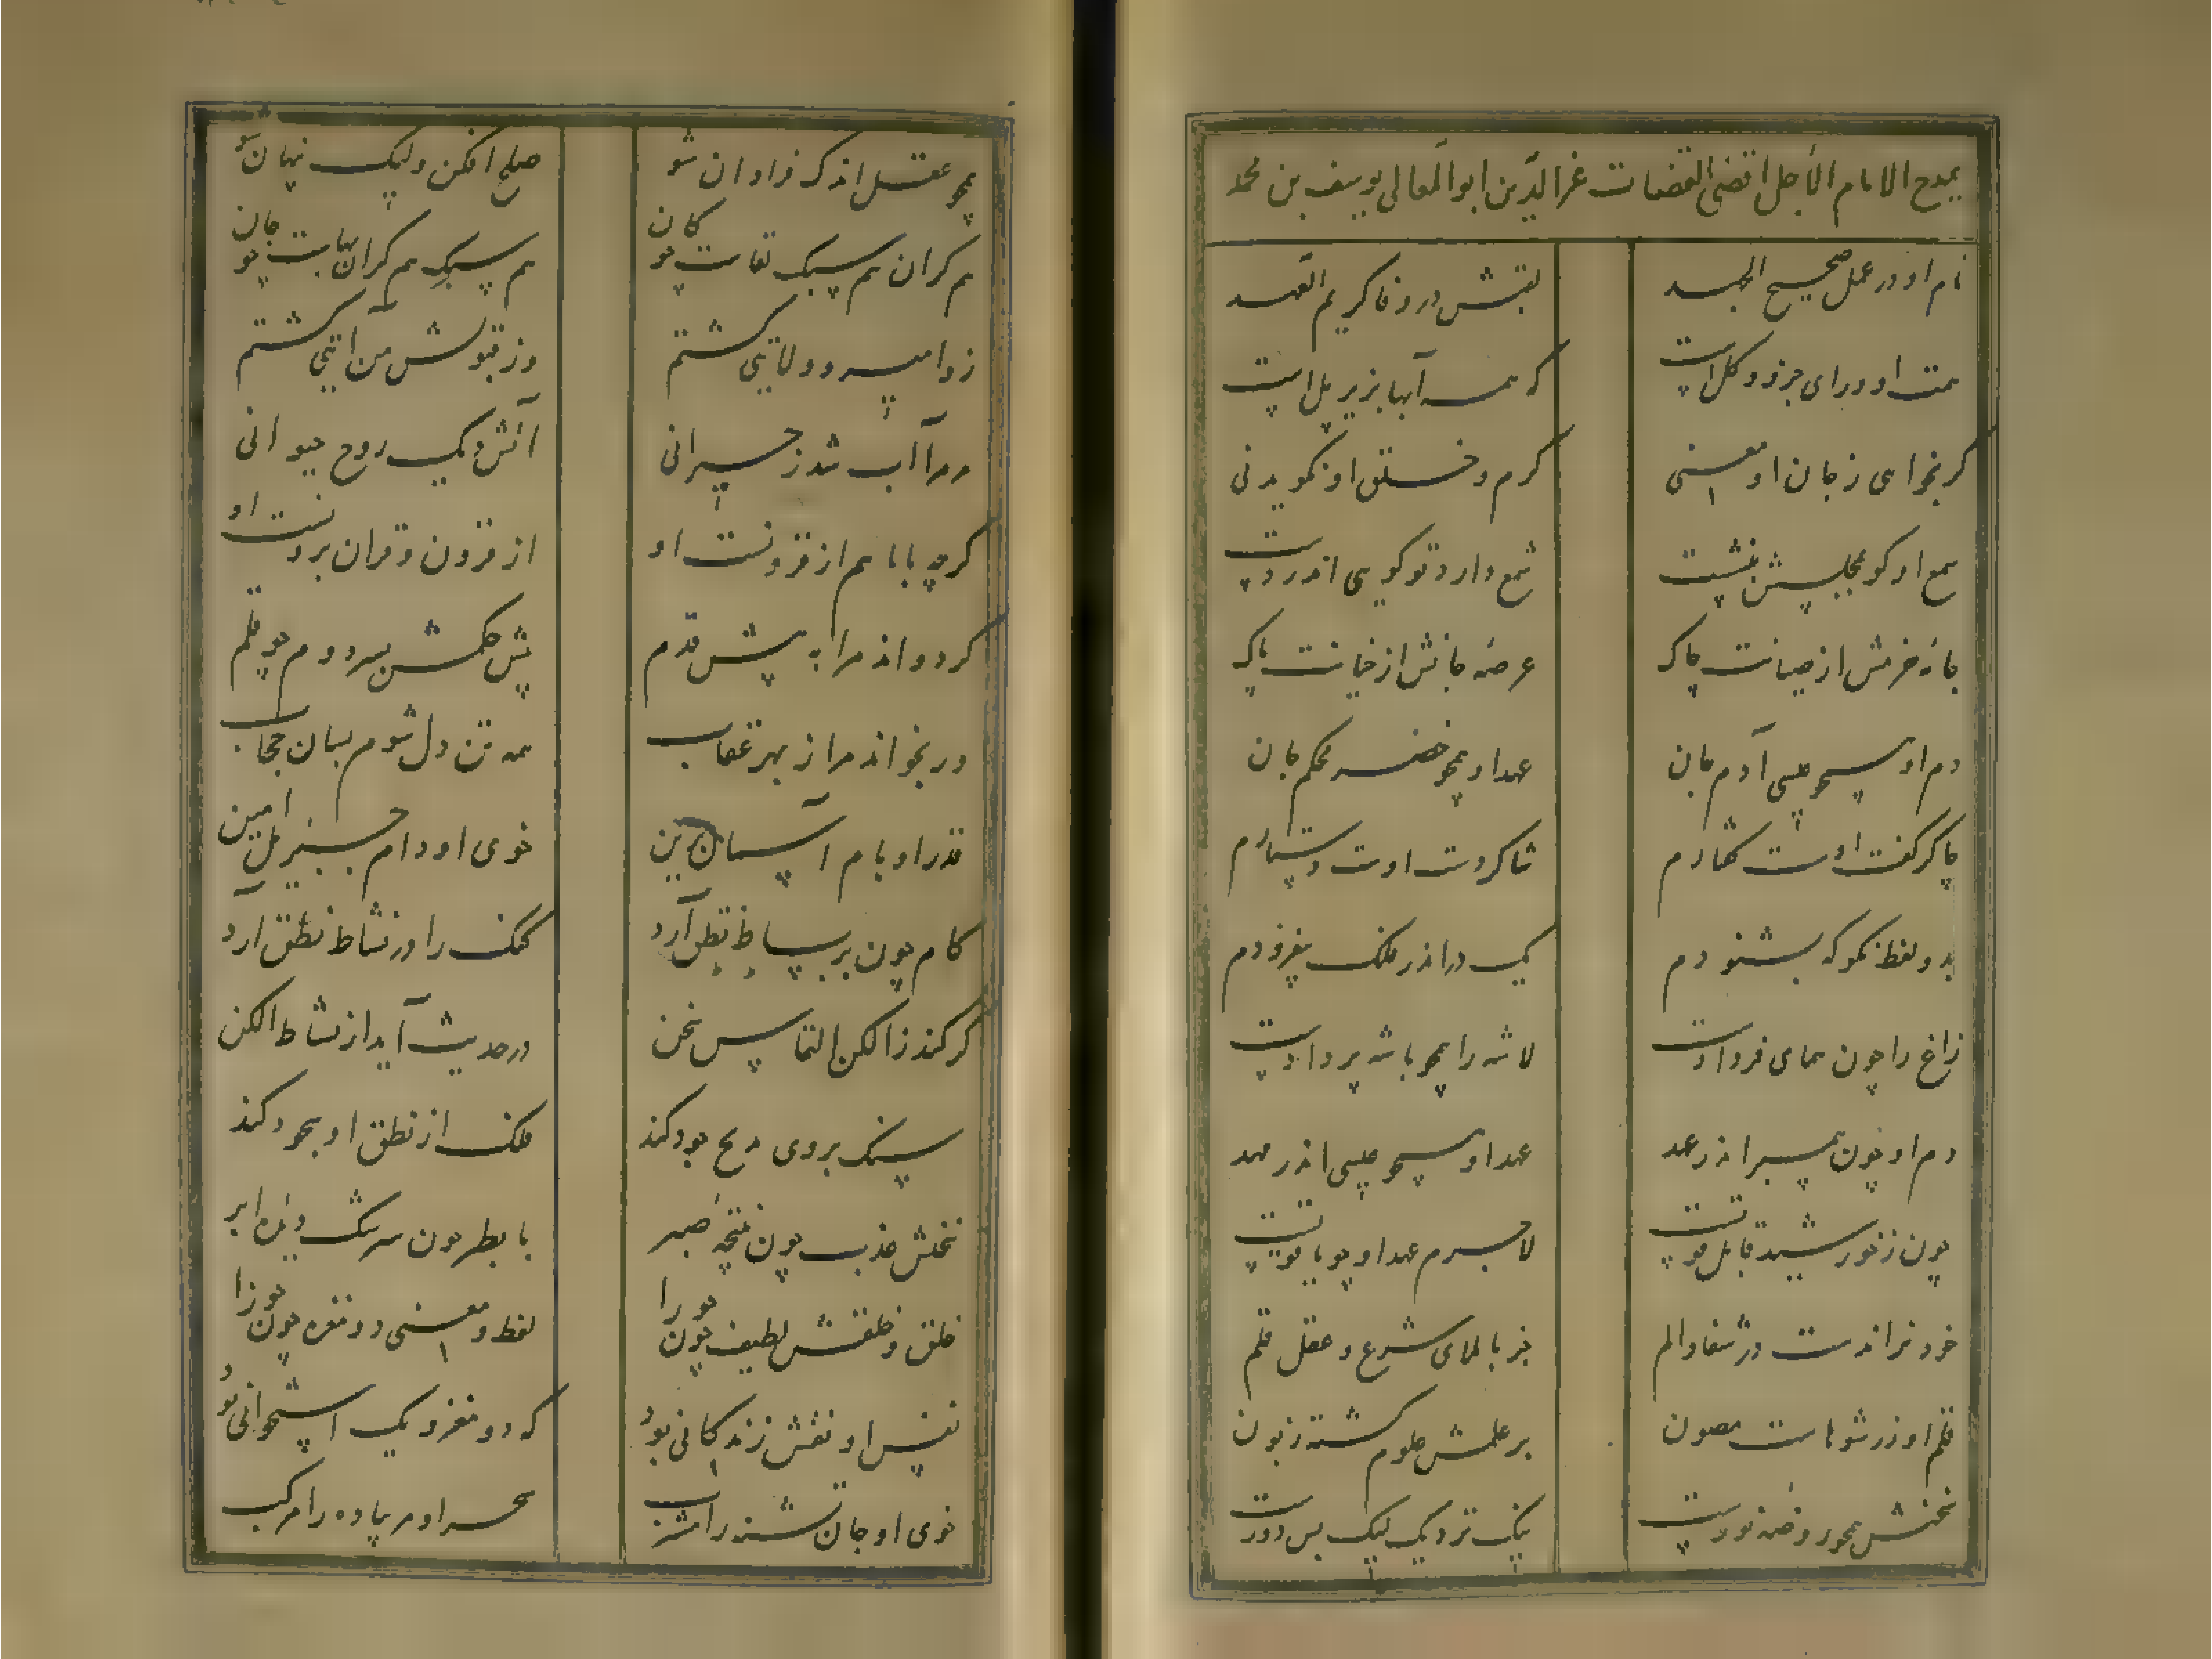 بمدح الامام الأجل اقضی القضات عز الدین ابوالمعالی یوسف بن محمد
نام او در عمل صحیح الجسد لقبش در وفا کریم العهد
همت او ورای جزو و کل است که همه آبها بزیر پل است
کر بخواهی ز جان او معنی کرم و خلق او نکوید نی
سمع او کو بمجلسش بنشست شمع دارد تو کویی اندر دست
جامه خرمش از صیانت چاک عرصه جانش از خیانت پاک
دم او همچو عیسی آدم جان عهد او همچو خضر محکم جان
چاکر کفت اوست کفتارم شاکر دست اوست دستارم
بدو لفظ نکو که بشنودم یک در اندر فلک بیفزودم
زاغ را چون همای فر دادست لاشه را همچو باشه پر دادست
دم او چون پیمبر اندر عهد عهد او همچو عیسی اندر مهد
چون ز خورشید قابل قوتست لاجرم عهد او چو یاقوتست
خود نراندست در شفا و الم جز باملای شرع و عقل قلم
قلم او ز رشوها ست مصون بر علمش علوم کشته زبون
سخنش همچو روضه نورست نیک نزدیک لیک بس دورست
همچو عقل اندک فراوان شو صلح افکن ولیک پنهان شو
هم کران هم سبک لقاست چو کان هم سبک هم کران بهاست چو جان
زو امیر دو ولایتی کشتم وز قبولش من آیتی کشتم
مر مرا آب شد ز حیرانی آتش دیک روح حیوانی
کرچه با ما هم از قرونست او از قرون و قران برونست او
کر دواند مرا به پیش قدم پیش حکمش بسر دوم چو قلم
ور بخواند مرا ز بهر عقاب همه تن دل شوم بسان حجاب
قدر او بام آسمان برین خوی او دام جبرئیل امین
کام چون بر بساط نطق آرد کنک را در نشاط نطق آرد
کر کند ز الکن التماس سخن در حدیث آید از نشاط الکن
سنک بر وی مدیح جود کند فلک از نطق او سجود کند
سخنش عذب چون نتیجه صبر با بطر چون سرشک دیده ابر
خلق و خلقتش لطیف چون جورا لفظ و معنی دو مغزه چون جوزا
نفس او نقش زندکانی بود که دو مغز و یک استخوانی بود
خوی او جان تشنه را مشرب سحر او مر پیاده را مرکب